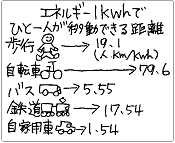 エネルギー1kwhで
ひと一人が移動できる距離
歩行→19.1
(人.km/kwh)
自転車→79.6
バス→5.55
鉄道→17.54
自家用車→1.54